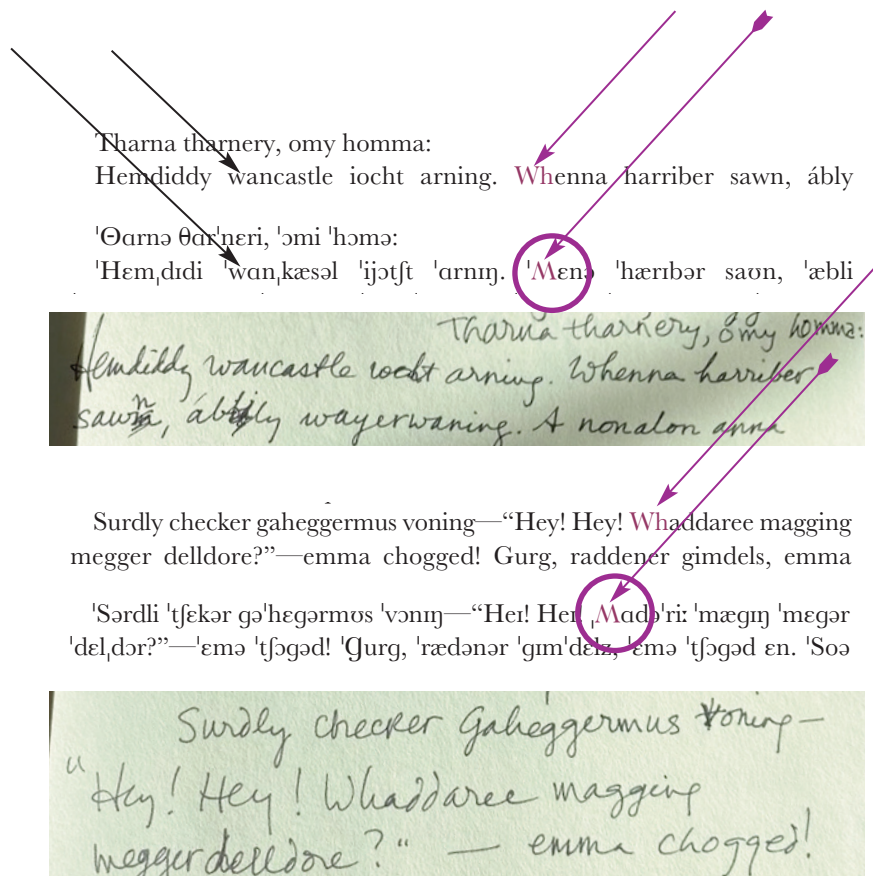 Tharna tharnery, omy homma:
Hemdiddy wancastle iocht arning. Whenna harriber sawn, ábly
ˈΘɑrnə θɑrˈnɛri, ˈɔmi ˈhɔmə:
ˈHɛmˌdɪdi ˈwɑnˌkæsəl ˈijɔtʃt ˈɑrnɪŋ. ˈʍɛnə ˈhærɪbər saʊn, ˈæbli
Tharna tharnery, omy homma:
Hemdiddy wancastle iocht arning. Whenna harriber
sawn, ábly wayerwaning. A nonalon anna
Surdly checker gaheggermus voning—“Hey! Hey! Whaddaree magging
megger delldore?”—emma chogged! Gurg, raddener gimdels, emma
ˈSərdli ˈtʃɛkər gəˈhɛgərmʊs ˈvɔnɪŋ—“Heɪ! Heɪ! ˌʍɑdəˈriː ˈmægɪŋ ˈmɛgər
ˈdɛlˌdɔr?”—ˈɛmə ˈtʃɔgəd! ˈGurg, ˈrædənər ˈgɪmˈdɛlz, ˈɛmə ˈtʃɔgəd ɛn. ˈSoə
Surdly checker Gahéggermus voning—
“Hey! Hey! Whaddaree magging
megger delldore?“ — emma chogged!